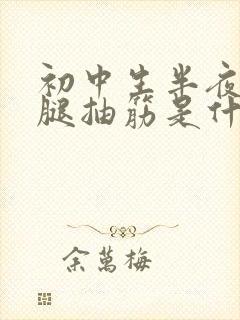 初中生半夜
腿抽筋是什
余萬梅